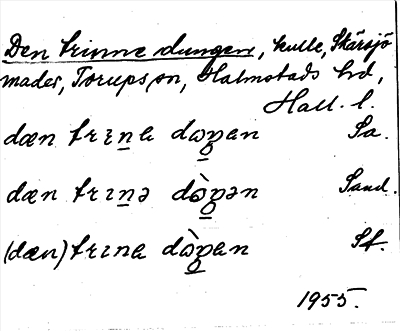 Den trinne dungen, kulle, Skärsjö
mader, Torups sn, Halmstads hd,
Hall. l.
dæn trɪn̲a dⱺŋ̲an Sa.
dæn trɪn̲ə dⱺ̀ŋ̲ən Sand.
(dæn) trɪna dⱺ̀ŋ̲an St.
1955.